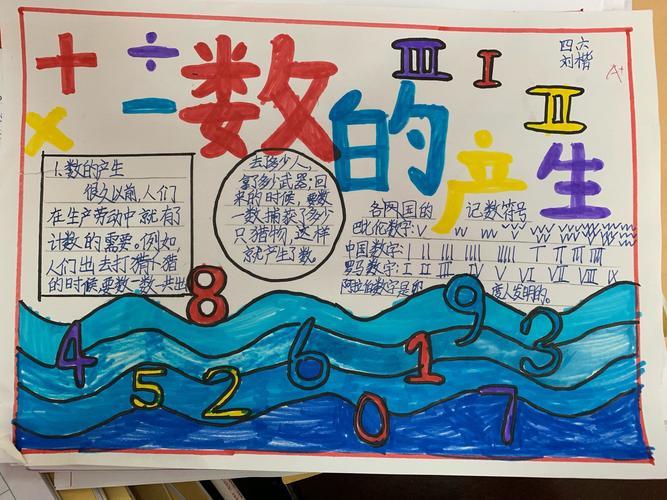 + ÷ 数的产生 Ⅲ Ⅰ Ⅱ
× −
四六
刘楷
A+
1.数的产生
很久以前,人们
在生产劳动中就有了
计数的需要。例如,
人们出去打猎
的时候,要数一数一共出
去多少人,
拿了多少武器;回
来的时候,要数
一数捕获了多少
只猎物,这样
就产生了数。
各国的 记数符号
中国数字: | || ||| |||| |||||
罗马数字: Ⅰ Ⅱ Ⅲ Ⅳ Ⅴ Ⅵ Ⅶ Ⅷ Ⅸ
阿拉伯数字是 度人发明的。
8 9
4 6 1 3
5 2 0 7